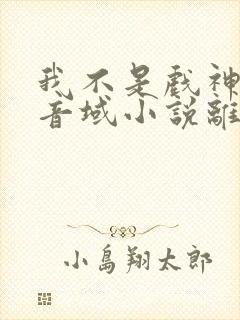 我不是戲神
音域小說離
小島翔太郎